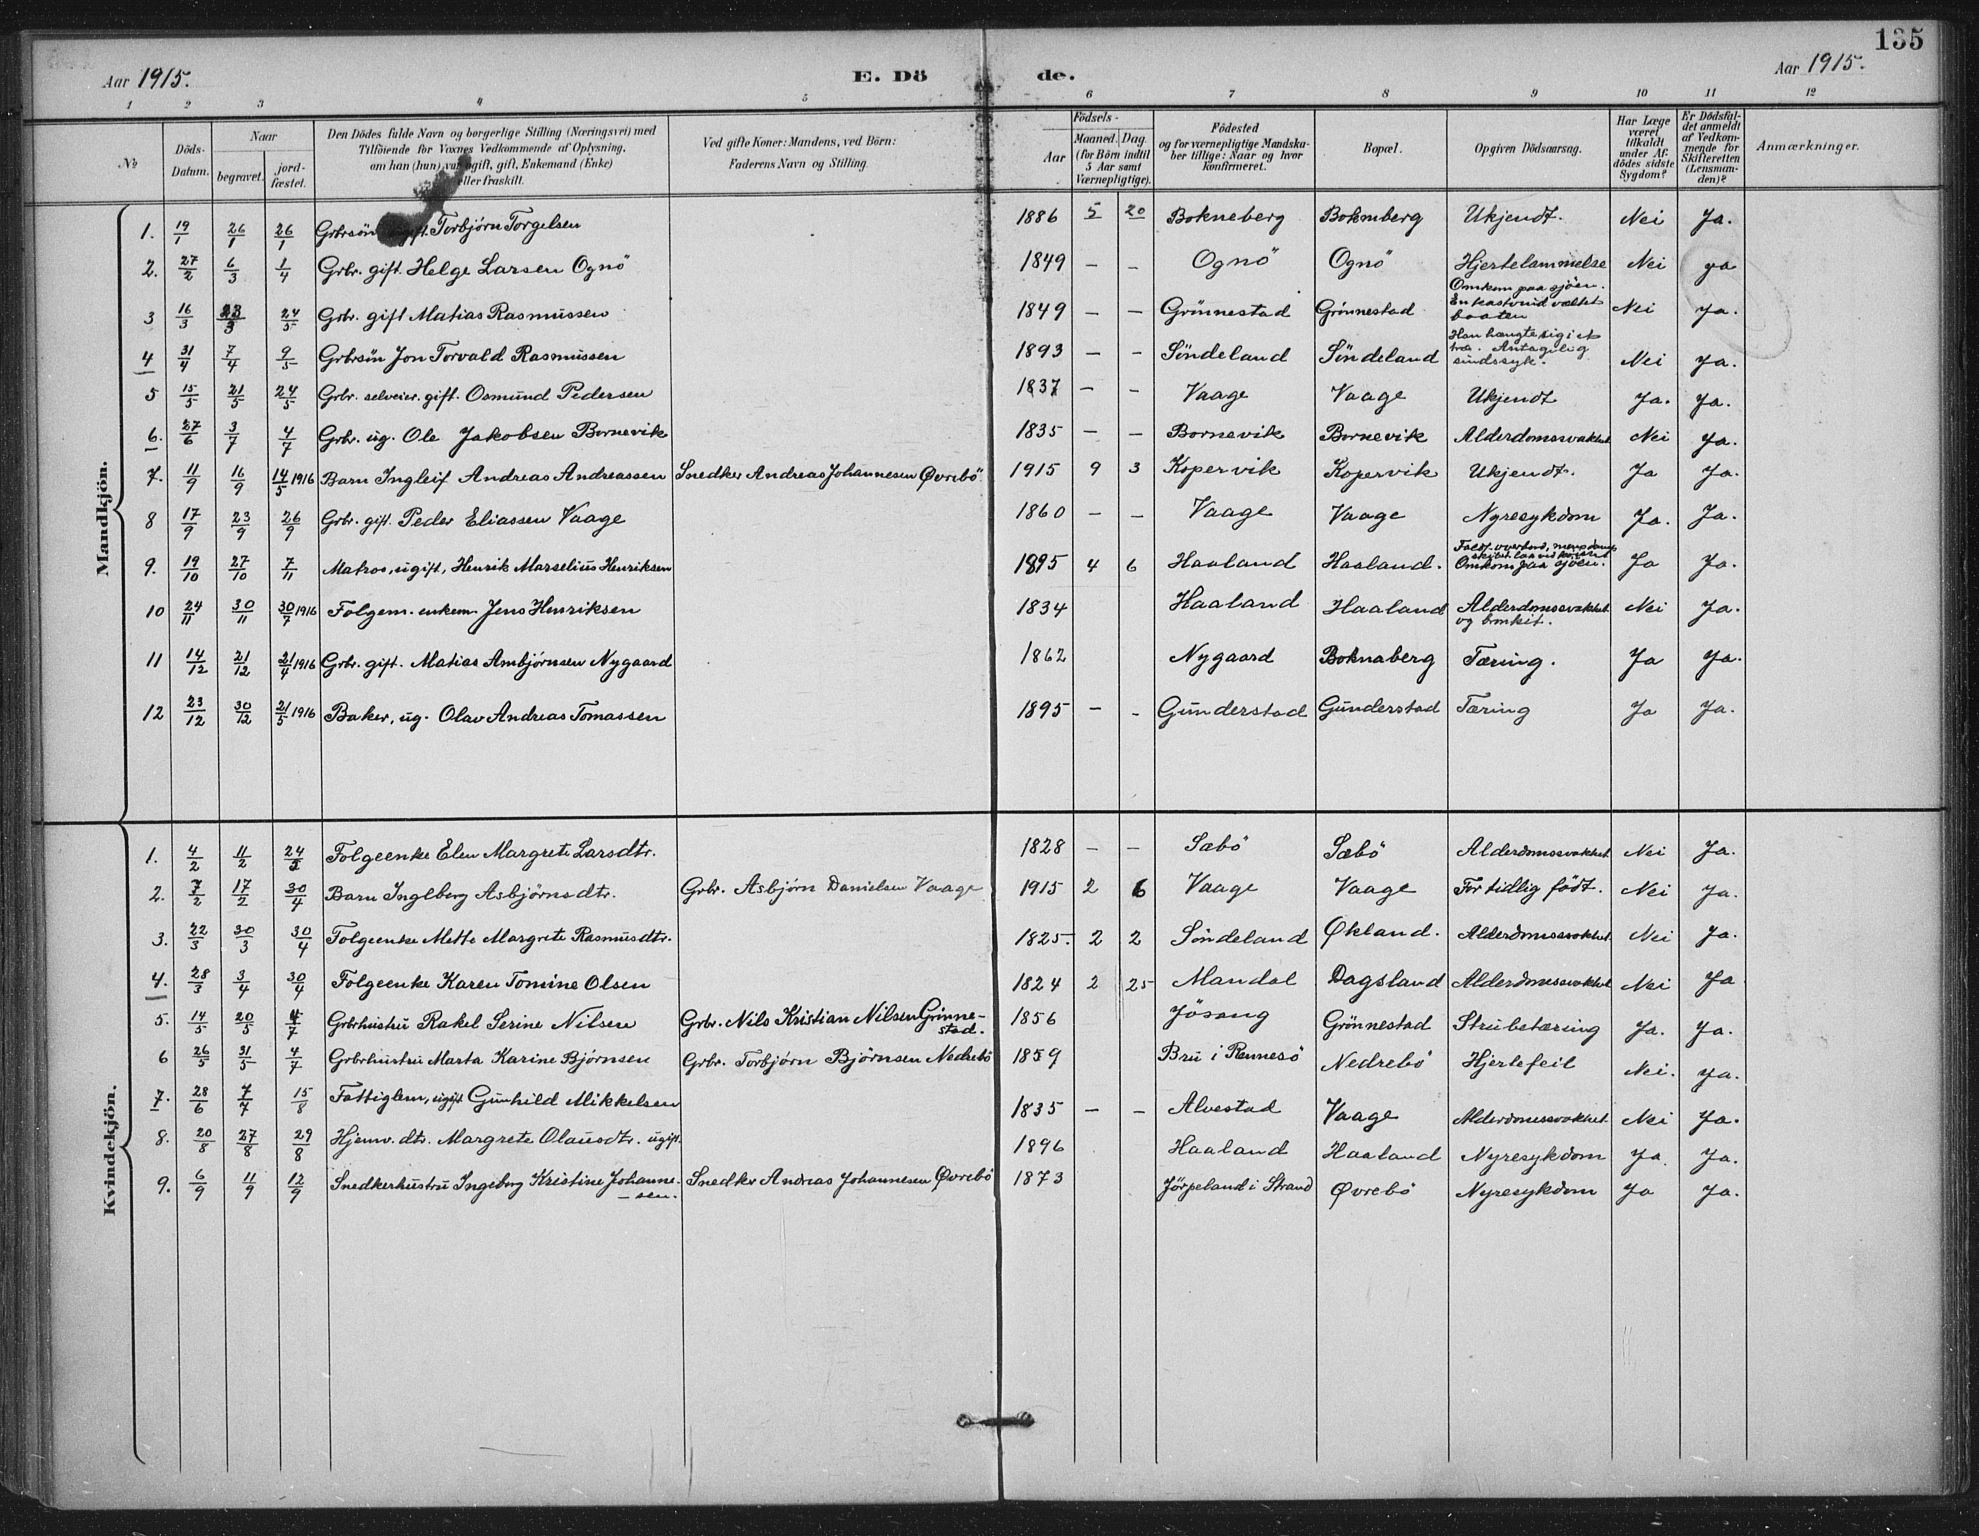 135
Aar 1915.
E. Dö
de.
Aar 1915.
1 2 3 4 5 6 7 8 9 10 11 12
No
Döds-Datum.
Naar
begravet.
jord-fæstet.
Den Dödes fulde Navn og borgerlige Stilling (Næringsvei) med
Tilföiende for Voxnes Vedkommende af Oplysning,
om han (hun) var ugift, gift, Enkemand (Enke)
eller fraskilt.
Ved gifte Koner: Mandens, ved Börn:
Faderens Navn og Stilling.
Födsels-
Aar
Maaned. Dag.
(for Börn indtil
5 Aar samt
Værnepligtige).
Födested
og for værnepligtige Mandska-
ber tillige: Naar og hvor
konfirmeret.
Bopæl.
Opgiven Dödsaarsag.
Har Læge
været
tilkaldt
under Af-
dödes sidste
Sygdom?
Er Dödsfal-
det anmeldt
af Vedkom-
mende for
Skifteretten
(Lensman-
den)?
Anmærkninger.
Mandkjön.
1. 19/1 26/1 26/1 Grbrsön Torbjörn Torgelsen 1886 5 20 Bokneberg Boknberg Ukjendt. Nei Ja.
2. 27/2 6/3 1/4 Grbr. gift. Helge Larsen Ognö 1849 – – Ognö Ognö Hjertelammelse Nei ja
3 16/3 23/3 24/5 Grbr. gift Matias Rasmussen 1849 – – Grönnestad Grönnestad Omkom paa sjöen. En kastvind væltet baaten Nei Ja.
4 31/4 7/4 9/5 Grbrsön Jon Torvald Rasmussen 1893 – – Söndeland Söndeland Han hængte sig i et træ. Antagelig sindssyk. Nei Ja.
5 15/5 21/5 24/5 Grbr. selveier. gift. Osmund Pedersen 1837 – – Vaage Vaage Ukjendt Ja. Ja.
6. 27/6 3/7 4/7 Grbr. ug. Ole Jakobsen Bornevik 1835 – – Bornevik Bornevik Alderdomssvakhet Nei Ja.
7. 11/9 16/9 14/5 1916 Barn Ingleif Andreas Andreassen Snedker Andreas Johannesen Øvrebö 1915 9 3 Kopervik Kopervik Ukjendt. Ja Ja.
8 17/9 23/9 26/9 Grbr. gift. Peder Eliassen Vaage 1860 – – Vaage Vaage Nyresykdom Ja. Ja.
9. 19/10 27/10 7/11 Matros, ugift, Henrik Marselius Henriksen 1895 4 6 Haaland Haaland. Faldt overbord, mens skibet laa ved Omkom paa sjöen. Ja Ja.
10 24/11 30/11 30/7 1916 Folgem. enkem. Jens Henriksen 1834 Haaland Haaland Alderdomssvakhet og bronkit. Nei Ja.
11 14/12 21/12 21/4 1916 Grbr. gift. Matias Ambjörnsen Nygaard 1862 Nygaard Boknaberg Tæring. Ja Ja.
12 23/12 30/12 21/5 1916 Baker, ug. Olav Andreas Tomassen 1895 – – Gunderstad Gunderstad Tæring Ja Ja.
Kvindekjön.
1. 4/2 11/2 24/2 Folgeenke Elen Margrete Larsdtr. 1828 – – Sæbö Sæbö Alderdomssvakhet Nei Ja.
2. 7/2 17/2 30/4 Barn Inglberg Asbjörnsdtr. Grbr. Asbjörn Danielsen Vaage 1915 2 6 Vaage Vaage For tidlig födt. Nei Ja.
3. 22/3 30/3 30/4 Folgeenke Mette Margrete Rasmusdtr. 1825. 2 2 Söndeland Økland. Alderdomssvakhet Nei Ja.
4. 28/3 3/4 30/4 Folgeenke Karen Tomine Olsen 1824 2 25 Mandal Dagsland Alderdomssvakhet Nei Ja
5. 14/5 20/5 4/7 Grbrhustru Rakel Serine Nilsen Grbr. Nils Kristian Nilsen Grönne-stad. 1856 Jösang Grönnestad Strubetæring Ja. Ja.
6 26/5 31/5 4/7 Grbrhustru Marta Karine Björnsen Grbr. Torbjörn Björnsen Nedrebö 1859 Bru i Rennesö Nedrebö Hjertefeil Nei. Ja.
7. 28/6 7/7 15/8 Fattiglem, ugift Gunhild Mikkelsen 1835 – – Alvestad Vaage Alderdomssvakhet Nei Ja.
8. 20/8 27/8 29/8 Hjemv. dtr. Margrete Olausdtr. ugift. 1896 Haaland Haaland Nyresykdom Ja. Ja.
9. 6/9 11/9 12/9 Snedkerhustru Ingeborg Kristine Johanne-sen. Snedker Andreas Johannesen Øvrebö 1873 Jörpeland i Strand Øvrebö Nyresykdom Ja Ja.